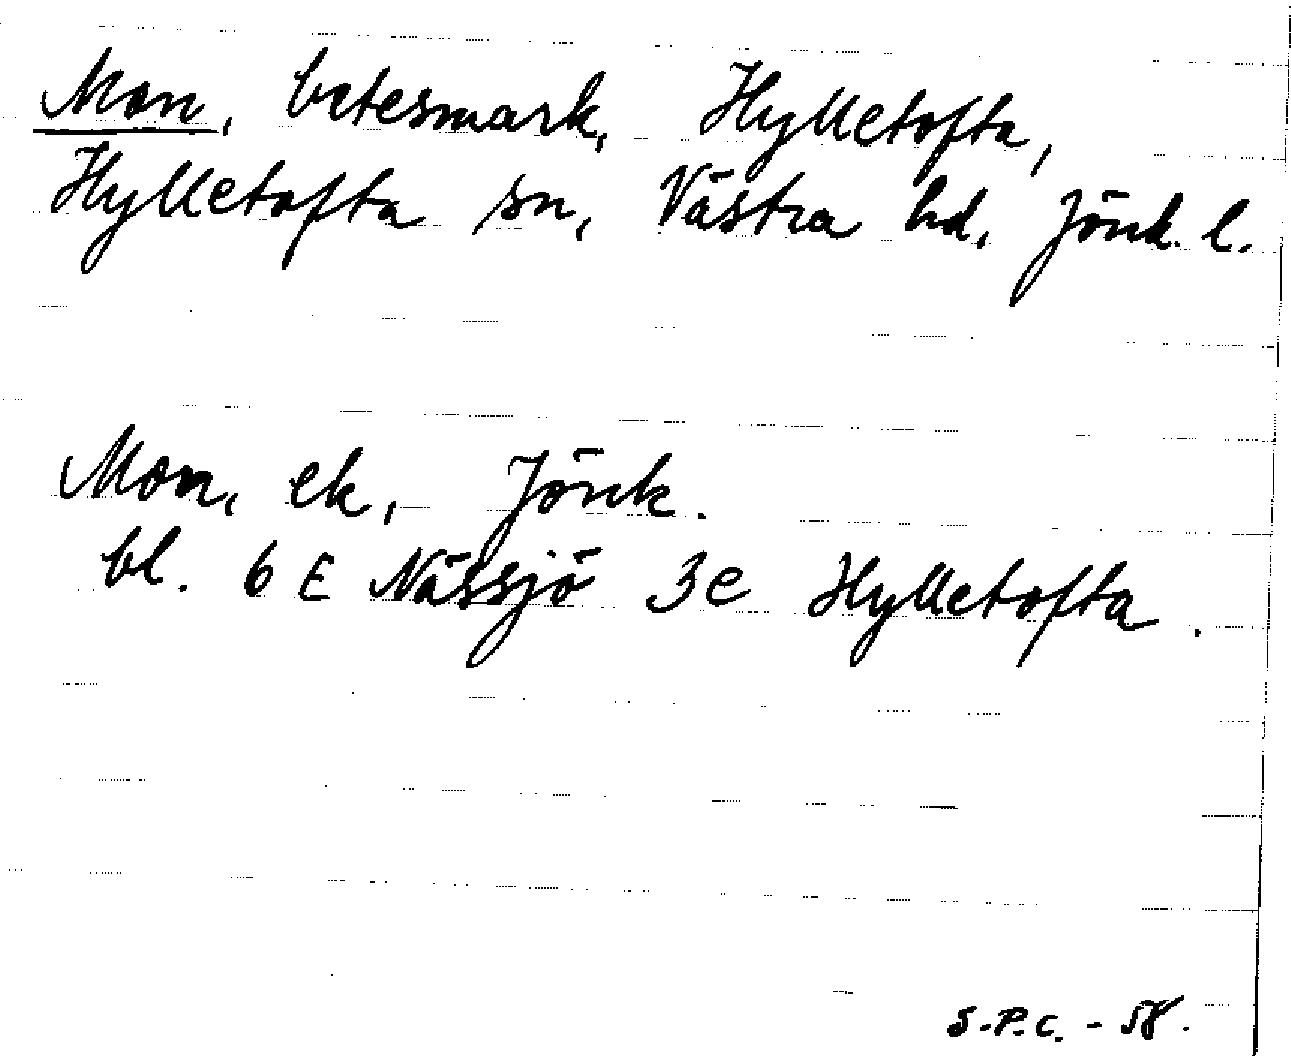 Mon, betesmark, Hylletofta,
Hylletofta sn, Västra hd, Jönk. l.
Mon, ek, Jönk.
bl. 6 E Nässjö 3e Hylletofta.
S.P.C. - 58.